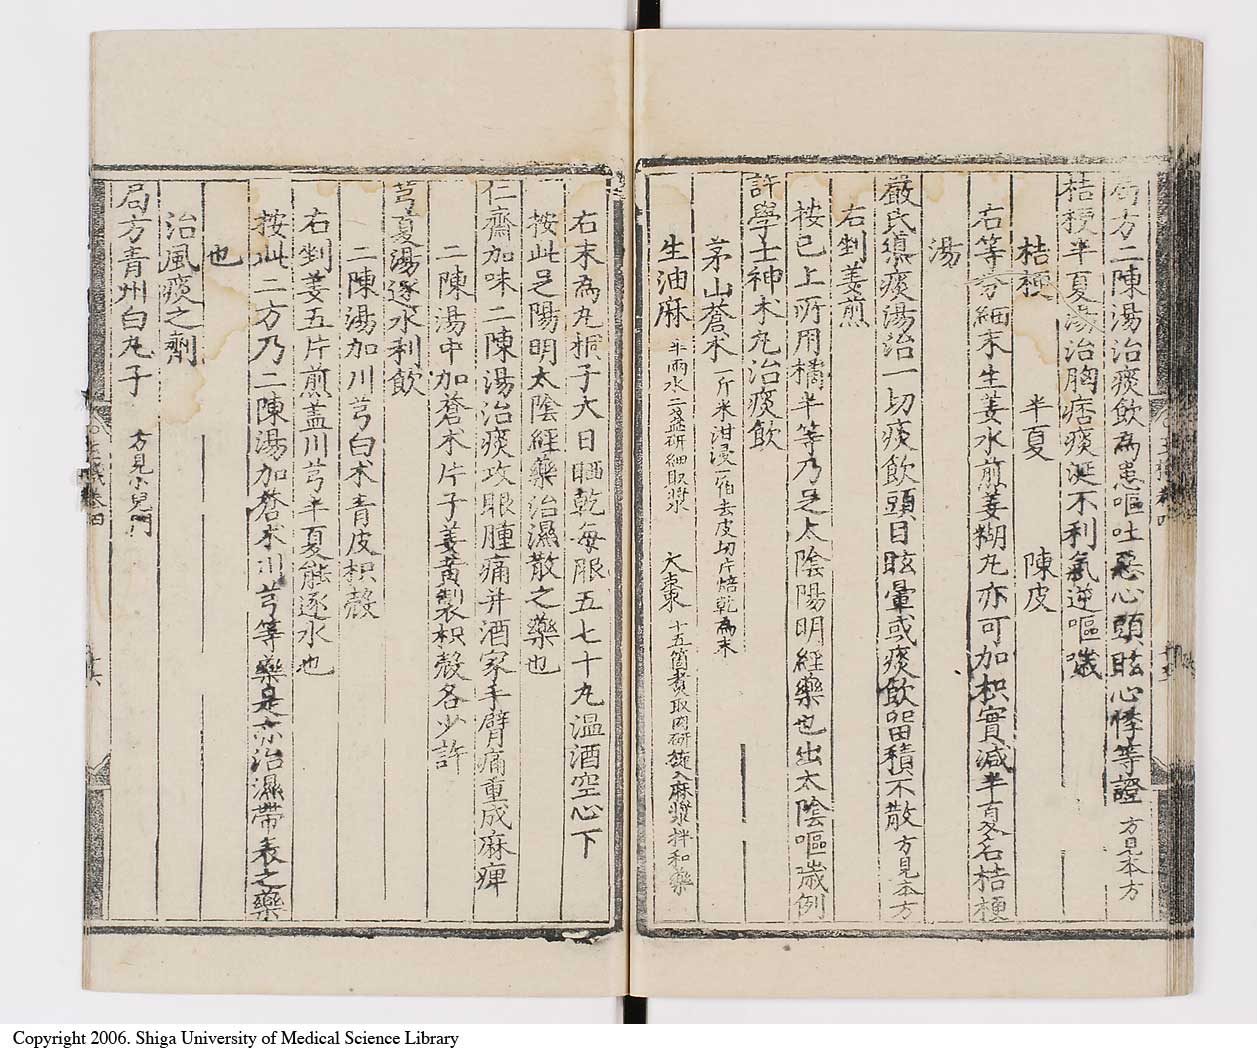 局方二陳湯治痰飲為患嘔吐惡心頭眩心悸等證 方見本方
桔梗半夏湯治胸痞痰涎不利氣逆嘔噦
桔梗 半夏 陳皮
右等分細末生姜水煎姜糊丸亦可加枳實減半夏名桔梗
湯
嚴氏導痰湯治一切痰飲頭目眩暈或痰飲留積不散 方見本方
右剉姜煎
按已上所用橘半等乃足太陰陽明經藥也出太陰嘔噦例
許學士神朮丸治痰飲
茅山蒼朮 一斤米泔浸一宿去皮切片焙乾為末
生油麻 半兩水二盞研細取漿 大棗 十五箇煑取肉研旋入麻漿拌和藥
右末為丸桐子大日晒乾每服五七十丸温酒空心下
按此足陽明太陰經藥治濕散之藥也
仁齋加味二陳湯治痰攻眼腫痛并酒家手臂痛重成麻痺
二陳湯中加蒼朮片子姜黄製枳殼各少許
芎夏湯逐水利飲
二陳湯加川芎白朮青皮枳殼
右剉姜五片煎盖川芎半夏能逐水也
按此二方乃二陳湯加蒼朮川芎等藥是亦治濕帶表之藥
也
治風痰之劑
局方青州白丸子 方見小兒門
Copyright 2006. Shiga University of Medical Science Library